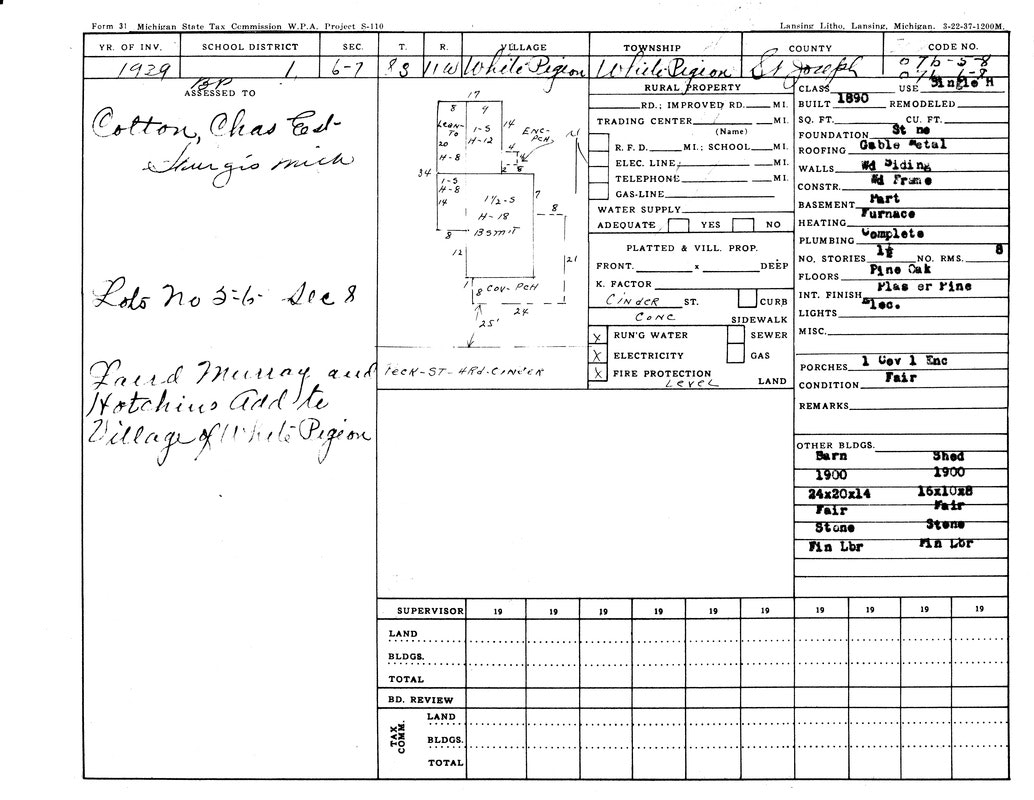 Form 31 Michigan State Tax Commission W.P.A. Project S-110
Lansing Litho. Lansing, Michigan. 3-22-37-1200M.
YR. OF INV. SCHOOL DISTRICT SEC. T. R. VILLAGE TOWNSHIP COUNTY CODE NO.
1939 1 6-7 8S 11W White Pigeon White Pigeon St Joseph 076-5-8
076-6-8
BP
ASSESSED TO
Cotton, Chas Est
Sturgis Mich
Lots No 5-6- Sec 8
Laird Murray and
Hotchins Add to
Village of White Pigeon
17
8 9
LEAN-TO 1-S 14 ENC-PCH N
20 H-12 4
H-8 4
2 8
34 1-S 7
H-8 1 1/2-S 8
14 H-18
8 BSMT
12 21
1
8 COV-PCH
24
25'
PECK-ST-HRd-CINDER
RURAL PROPERTY
RD.; IMPROVED RD. MI.
TRADING CENTER MI.
(Name)
R. F. D. MI.; SCHOOL MI.
ELEC. LINE MI.
TELEPHONE MI.
GAS-LINE
WATER SUPPLY
ADEQUATE, YES NO
PLATTED & VILL. PROP.
FRONT. x DEEP
K. FACTOR
CINDER ST. CURB
CONC SIDEWALK
X RUN'G WATER SEWER
X ELECTRICITY GAS
X FIRE PROTECTION
LEVEL LAND
CLASS USE Single H
BUILT 1890 REMODELED
SQ. FT. CU. FT.
FOUNDATION St ne
ROOFING Gable Metal
WALLS Wd Siding
CONSTR. Wd Frame
BASEMENT Part
HEATING Furnace
PLUMBING Complete
NO. STORIES 1½ NO. RMS. 8
FLOORS Pine Oak
INT. FINISH Plas er Pine
LIGHTS Elec.
MISC.
PORCHES 1 Cov 1 Enc
CONDITION Fair
REMARKS
OTHER BLDGS.
Barn Shed
1900 1900
24x20x14 16x10x8
Fair Fair
Stone Stone
Fin Lbr Fin Lbr
SUPERVISOR 19 19 19 19 19 19 19 19 19 19
LAND
BLDGS.
TOTAL
BD. REVIEW
TAX COMM.
LAND
BLDGS.
TOTAL